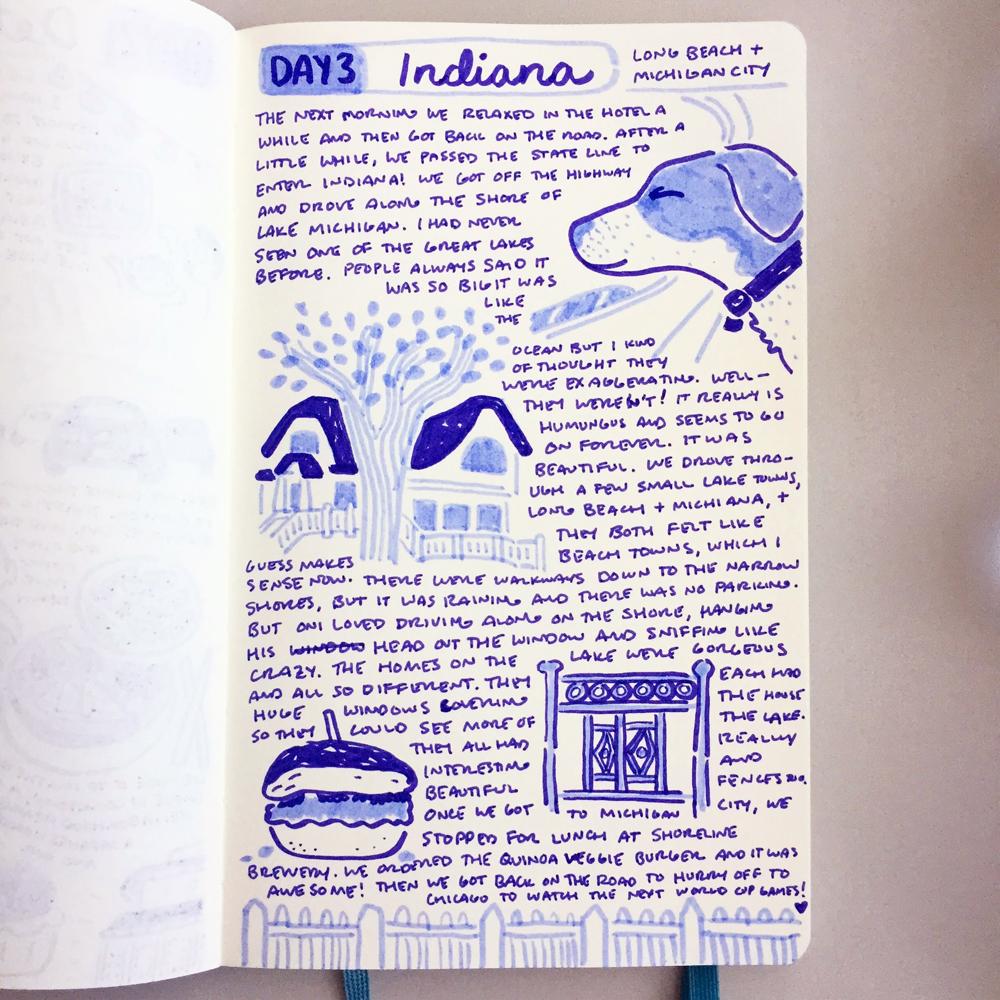 DAY 3 Indiana
LONG BEACH +
MICHIGAN CITY
THE NEXT MORNING WE RELAXED IN THE HOTEL A
WHILE AND THEN GOT BACK ON THE ROAD. AFTER A
LITTLE WHILE, WE PASSED THE STATE LINE TO
ENTER INDIANA! WE GOT OFF THE HIGHWAY
AND DROVE ALONG THE SHORE OF
LAKE MICHIGAN. I HAD NEVER
SEEN ONE OF THE GREAT LAKES
BEFORE. PEOPLE ALWAYS SAID IT
WAS SO BIG IT WAS
LIKE
THE
OCEAN BUT I KIND
OF THOUGHT THEY
WERE EXAGGERATING. WELL-
THEY WEREN'T! IT REALLY IS
HUMUNGUS AND SEEMS TO GO
ON FOREVER. IT WAS
BEAUTIFUL. WE DROVE THRO-
UGH A FEW SMALL LAKE TOWNS,
LONG BEACH + MICHIANA, +
THEY BOTH FELT LIKE
BEACH TOWNS, WHICH I
GUESS MAKES
SENSE NOW. THERE WERE WALKWAYS DOWN TO THE NARROW
SHORES, BUT IT WAS RAINING AND THERE WAS NO PARKING.
BUT ONI LOVED DRIVING ALONG ON THE SHORE, HANGING
HIS WINDOW HEAD OUT THE WINDOW AND SNIFFING LIKE
CRAZY. THE HOMES ON THE LAKE WERE GORGEOUS
AND ALL SO DIFFERENT. THEY EACH HAD
HUGE WINDOWS COVERING THE HOUSE
SO THEY COULD SEE MORE OF THE LAKE.
THEY ALL HAD REALLY
INTERESTING AND
BEAUTIFUL FENCES TOO.
ONCE WE GOT TO MICHIGAN CITY, WE
STOPPED FOR LUNCH AT SHORELINE
BREWERY. WE ORDERED THE QUINOA VEGGIE BURGER AND IT WAS
AWESOME! THEN WE GOT BACK ON THE ROAD TO HURRY OFF TO
CHICAGO TO WATCH THE NEXT WORLD CUP GAMES!